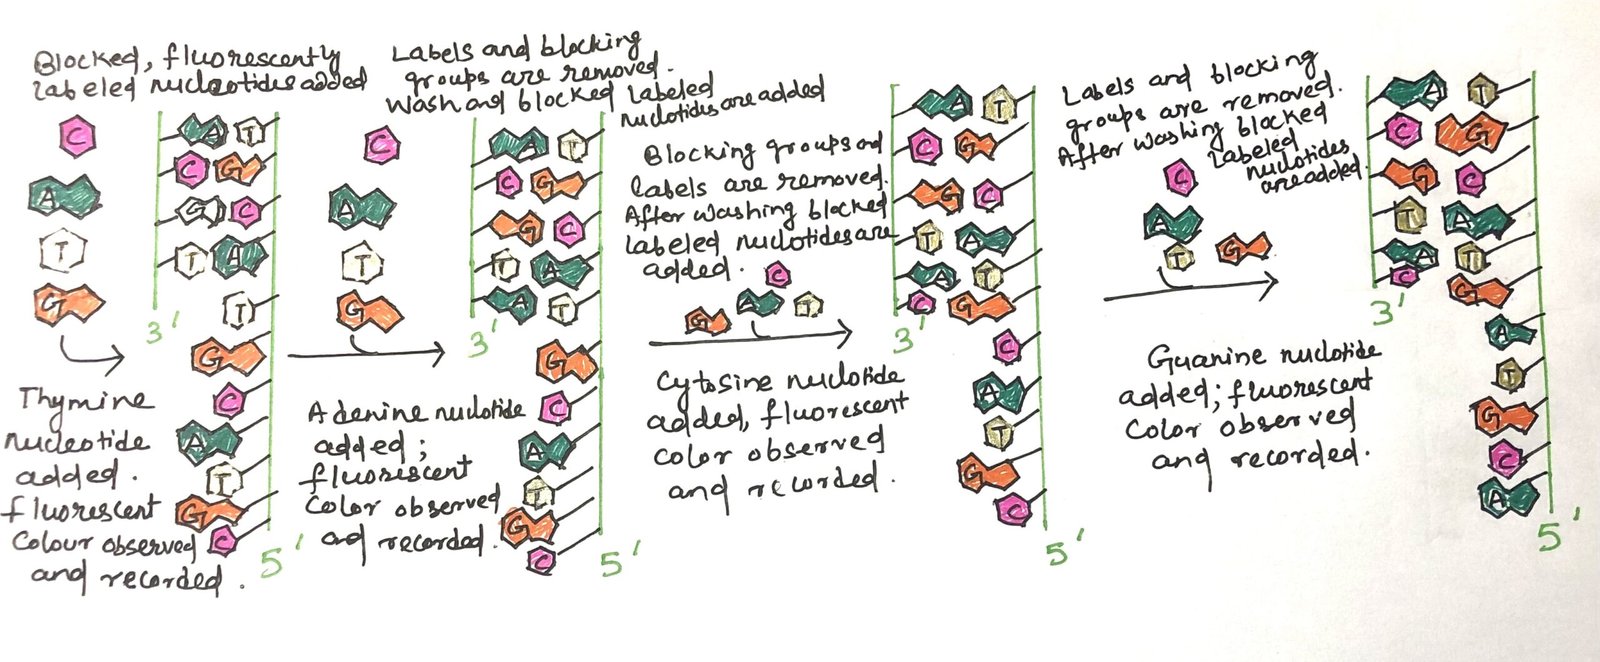 Blocked, fluorescently
labeled nucleotides added
C
A
T
G
Thymine
nucleotide
added.
fluorescent
Colour observed
and recorded.
A T
C G
G C
T A
T
3'
G
C
A
T
G
C
5'
Labels and blocking
groups are removed.
Wash and blocked labeled
nuclotides are added
C
A
T
G
Adenine nuclotide
added;
fluorescent
Color observed
and recorded.
A T
C G
G C
T A
A T
3'
G
C
A
T
G
C
5'
Blocking groups and
labels are removed.
After washing blocked
labeled nuclotides are
added.
C
G A T
Cytosine nuclotide
added, fluorescent
color observed
and recorded.
A T
C G
G C
T A
A T
C G
3'
C
A
T
G
C
5'
Labels and blocking
groups are removed.
After washing blocked
labeled
nuclotides
are added.
C
A
T G
Guanine nuclotide
added; fluorescent
Color observed
and recorded.
A T
C G
G C
T A
A T
C G
3'
A
T
G
C
A
5'